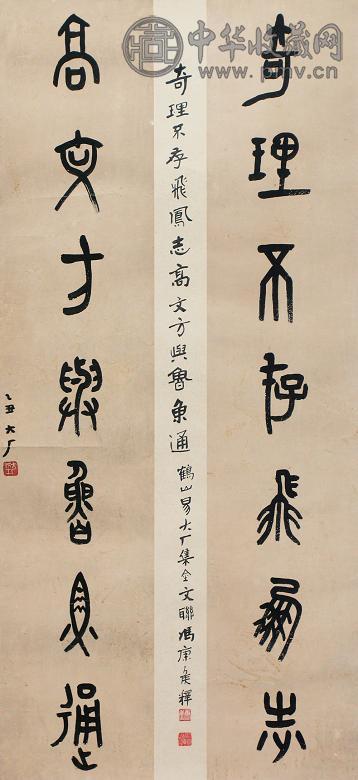 中华收藏网
www.pmv.cn
奇理不存飛鳳志
奇理不存飛鳳志高文方與魯魚通 鶴山易大厂集金文聯馮康矦釋
高文方與魯魚通
乙丑大厂